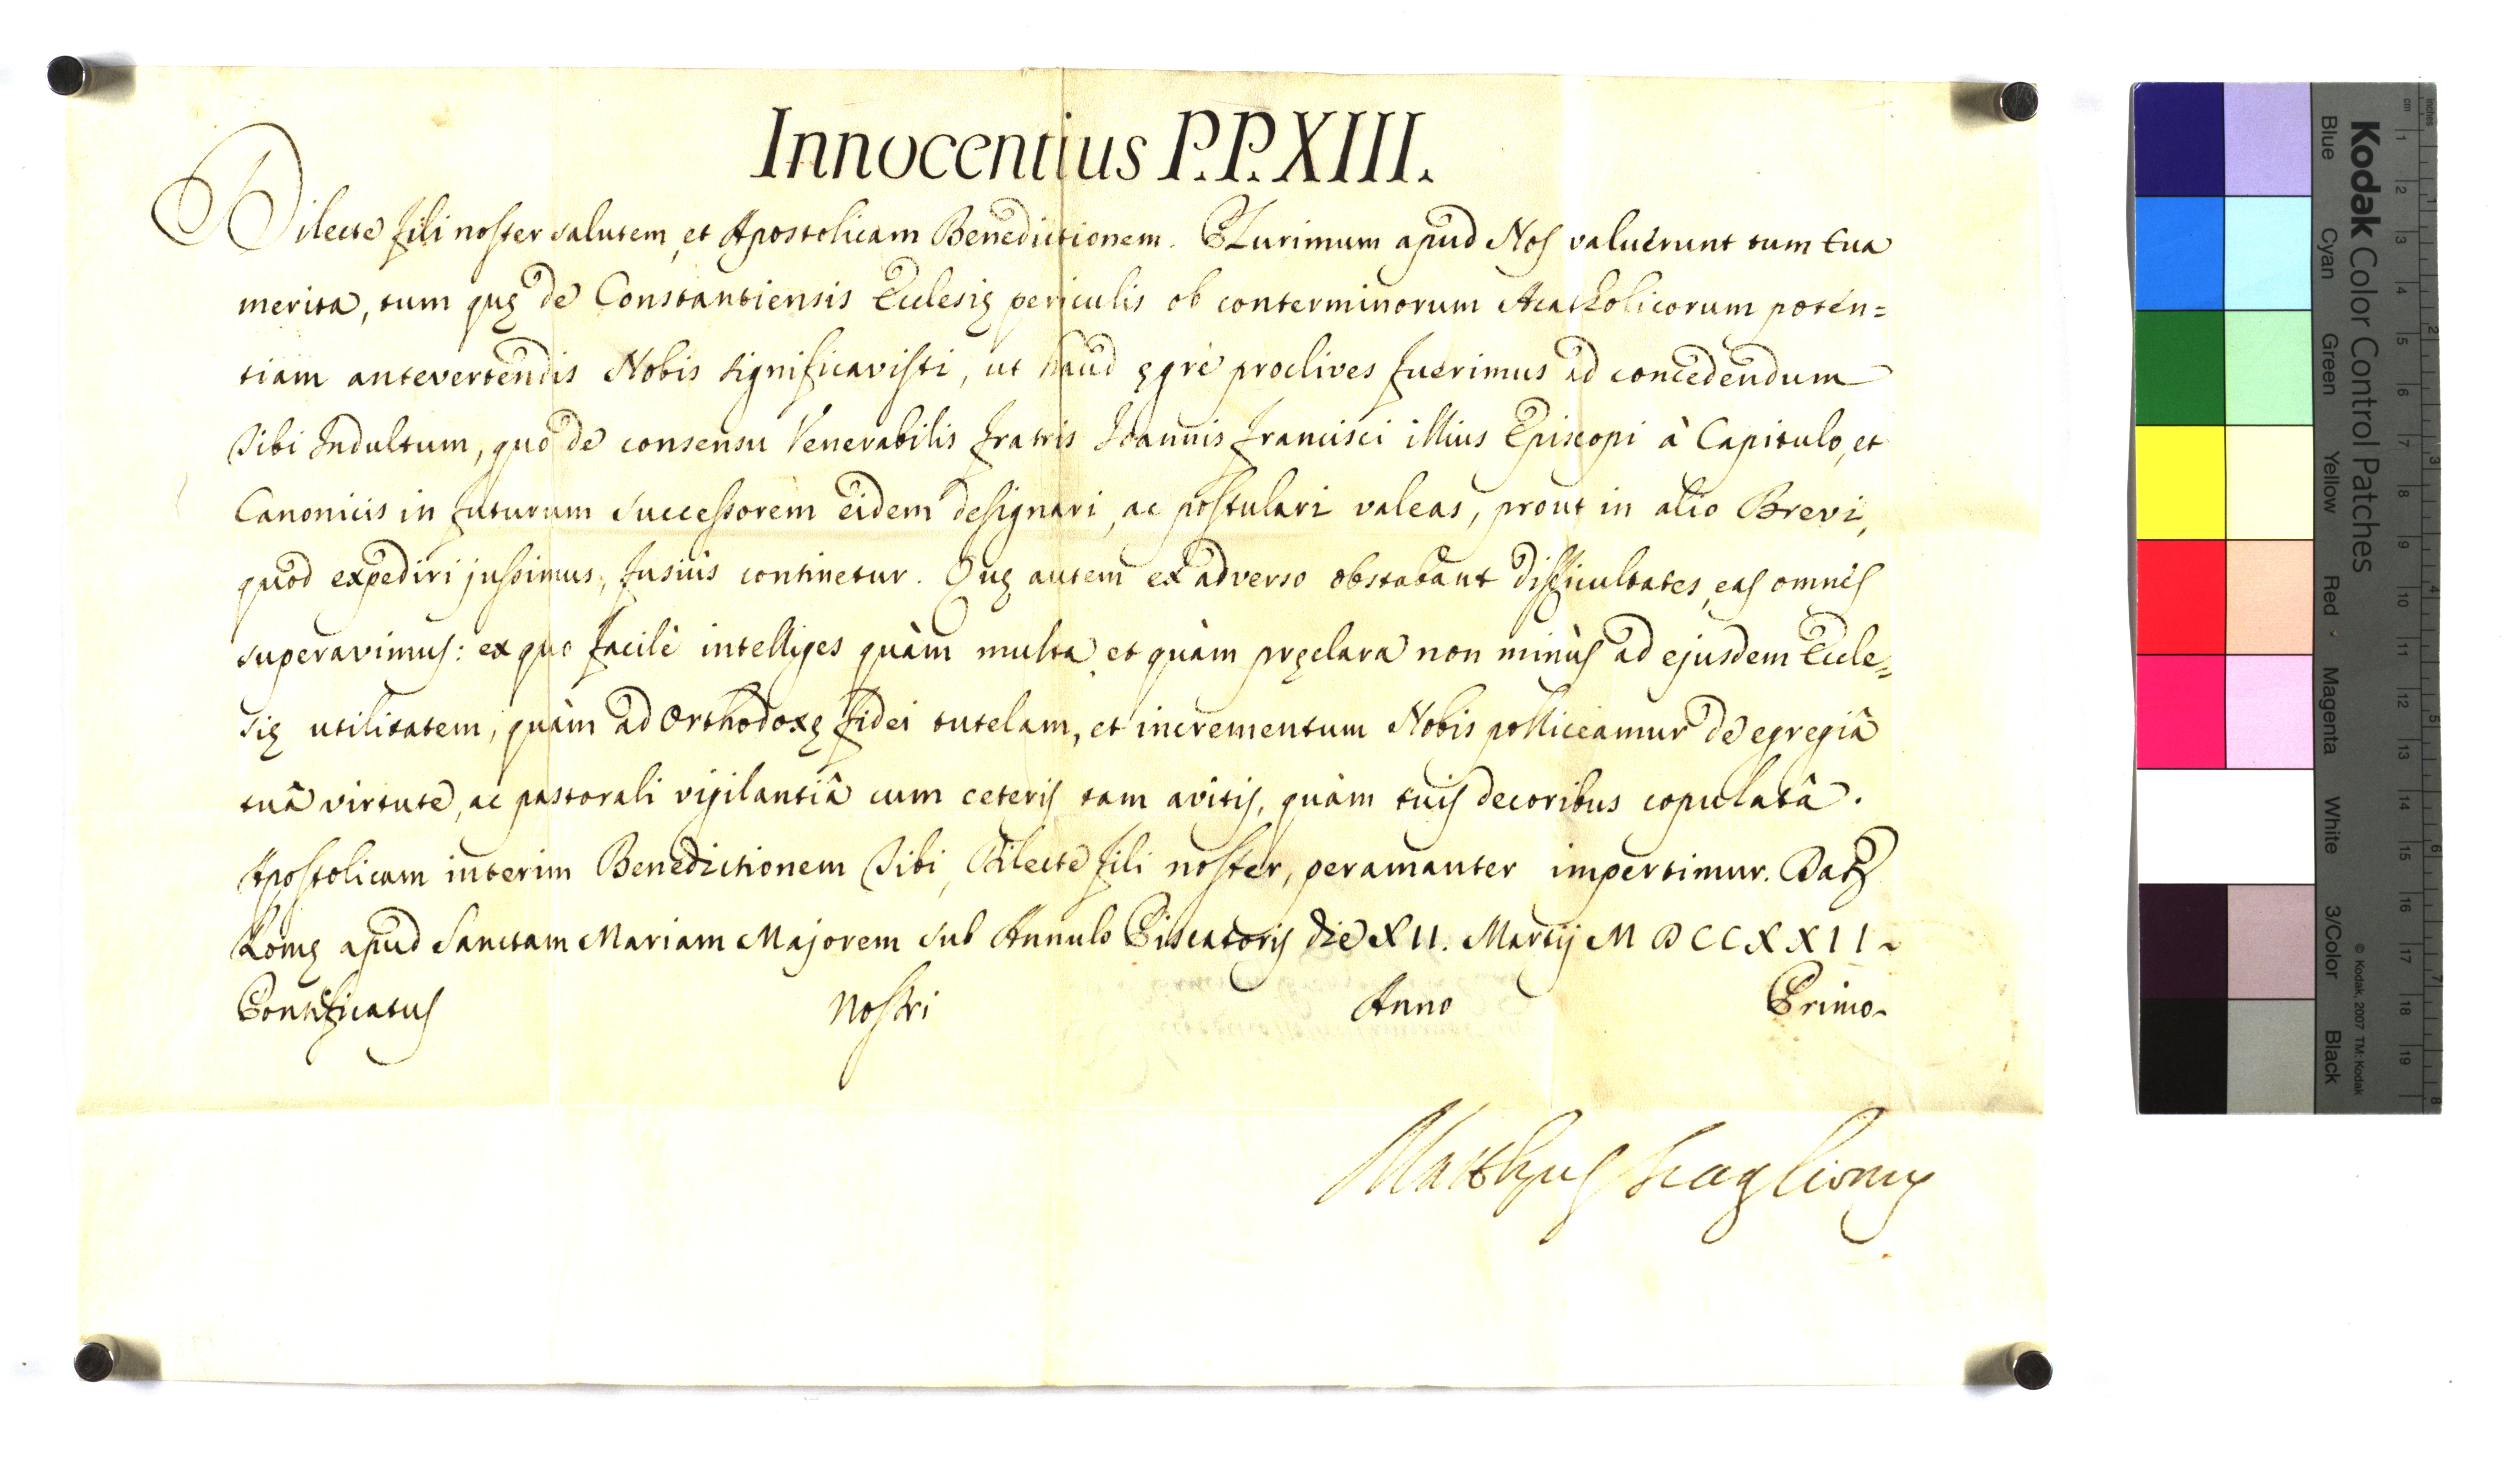 Innocentius P.P. XIII.
Dilecte fili noster salutem, et Apostolicam Benedictionem. Plurimum apud Nos valuerunt tum tua
merita, tum quę de Constantiensis Ecclesię periculis ob conterminorum Acatholicorum poten=
tiam antevertendis Nobis significavisti, ut haud ęgrè proclives fuerimus ad concedendum
Tibi Indultum, quo de consensu Venerabilis Fratris Ioannis Francisci illius Episcopi à Capitulo, et
Canonicis in futurum successorem eidem designari, ac postulari valeas, prout in alio Brevi,
quod expediri jussimus, fusiùs continetur. Quę autem ex adverso obstabant difficultates, eas omnes
superavimus: ex quo facilè intelliges quàm multa, et quàm pręclara non minùs ad ejusdem Eccle=
się utilitatem, quàm ad Orthodoxę fidei tutelam, et incrementum Nobis polliceamur de egregiâ
tuâ virtute, ac pastorali vigilantiâ cum ceteris tam avitis, quàm tuis decoribus copulatâ.
Apostolicam interim Benedictionem Tibi, Dilecte fili noster, peramanter impertimur. Dat
Romę apud Sanctam Mariam Majorem sub Annulo Piscatoris die XII. Martij MDCCXXII
Pontificatus nostri Anno Primo
Matthęus
Kodak Color Control Patches
Blue Cyan Green Yellow Red Magenta White 3/Color Black
© Kodak, 2007 TM: Kodak
cm 1 2 3 4 5 6 7 8 9 10 11 12 13 14 15 16 17 18 19
Inches 1 2 3 4 5 6 7 8